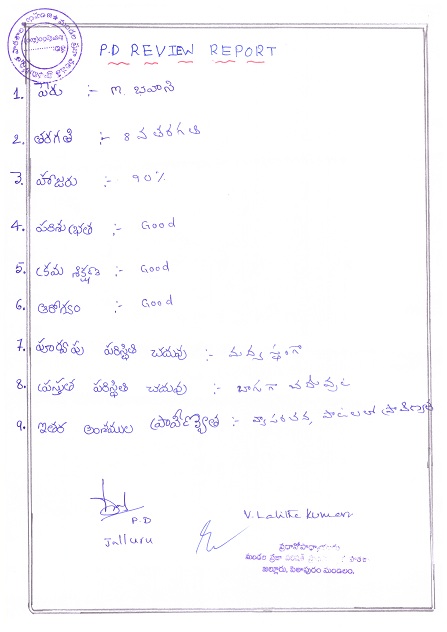 P.D REVIEW REPORT
1. పేరు :- M. భవాని
2. తరగతి :- 8 వ తరగతి
3. హాజరు :- 90%
4. పరిశుభ్రత :- Good
5. క్రమ శిక్షణ :- Good
6. ఆరోగ్యం :- Good
7. పూర్వపు పరిస్థితి చదువు :-
8. ప్రస్తుత పరిస్థితి చదువు :- బాగా
9. ఇతర అంశముల ప్రావీణ్యత :-
P.D
Jalluru
V. Lalitha Kumari
ప్రధానోపాధ్యాయులు
మండల ప్రజా పరిషత్
జల్లూరు, పిఠాపురం మండలం.